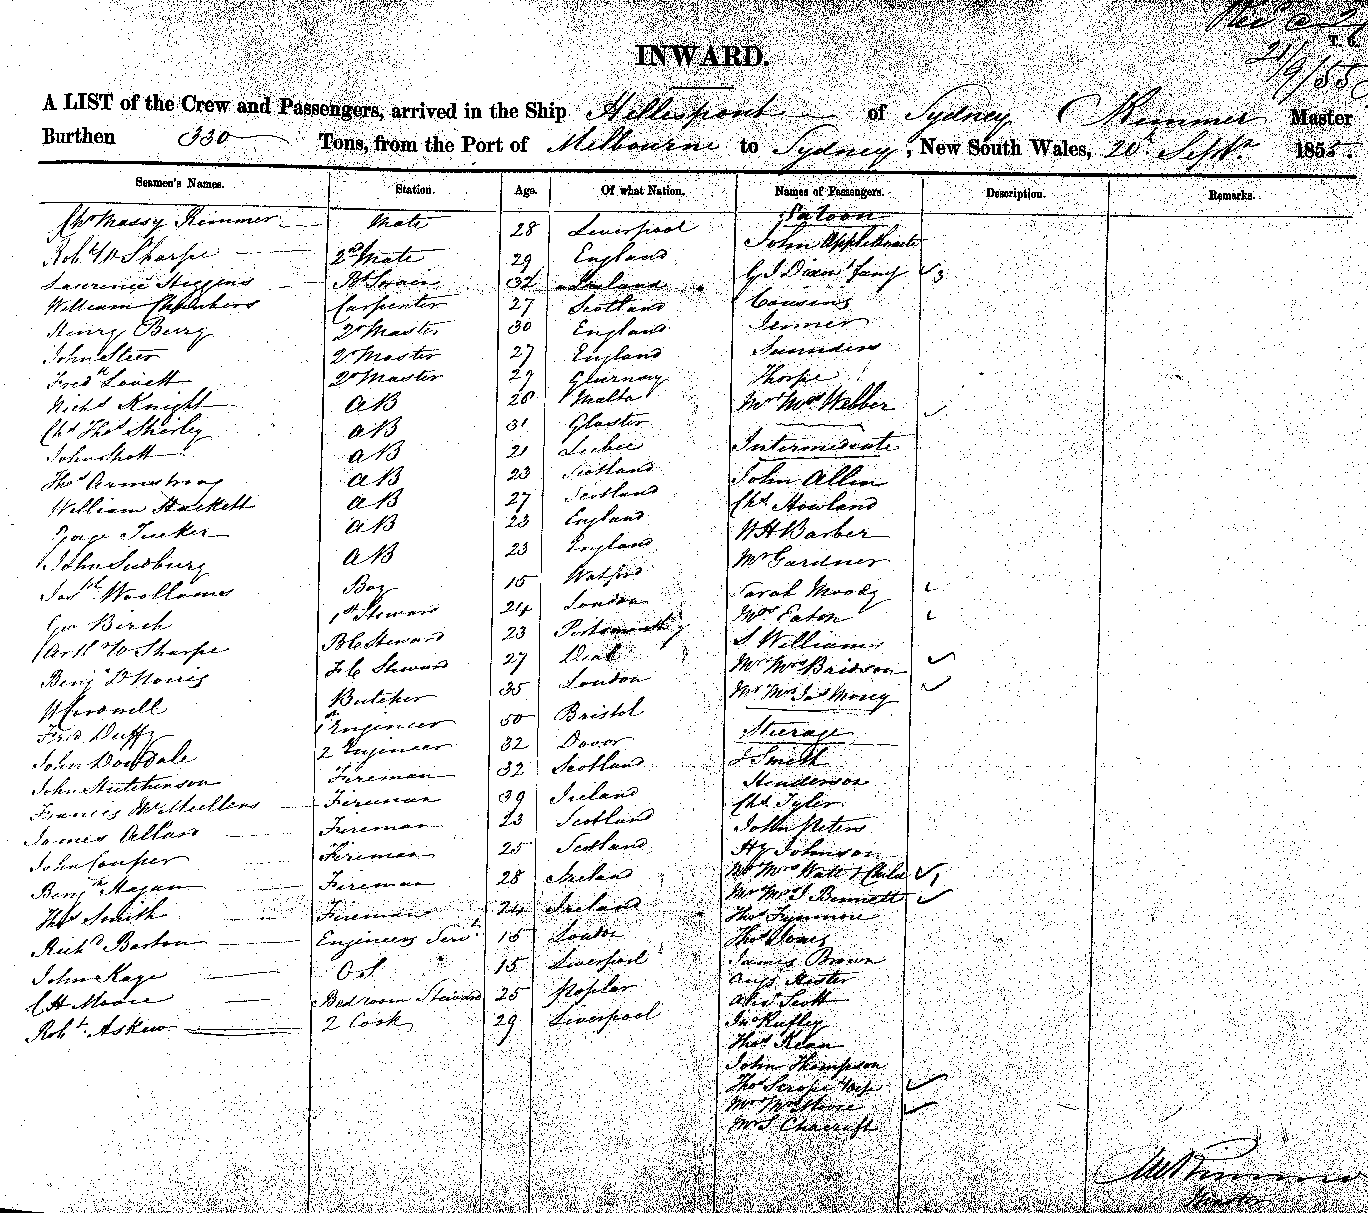 T. G.
21/9/55
INWARD.
A LIST of the Crew and Passengers, arrived in the Ship Hellespont of Sydney Rimmer Master
Burthen 330 Tons, from the Port of Melbourne to Sydney, New South Wales, 20th Septr. 1855.
Seamen's Names. Station. Age. Of what Nation. Names of Passengers. Description. Remarks.
Chs Massy Rimmer Mate 28 Liverpool Saloon
Robt W Sharpe 2nd Mate 29 England John Applethwaite
Lawrence Higgins Bt Swain 32 Ireland G J Dixon & famy 3
William Chambers Carpenter 27 Scotland Cousins
Henry Berry 2r Master 30 England Jenner
John Steer 2r Master 27 England Saunders
Fredk Lovett 2r Master 29 Guernsey Thorpe
Richd Knight AB 26 Malta Mr Mrs Webber
Chs Thos Shirley AB 31 Gloster
John Shott AB 21 Lubec Intermediate
Thos Armstrong AB 23 Scotland John Allen
William Haskett AB 27 Scotland Chs Howland
George Tucker AB 23 England W H Barber
John Sudbury AB 23 England Mr Gardner
Josh Woollams Boy 15 Watford Sarah Moody
Geo Birch 1st Steward 24 London Mrs Eaton
W Sharpe B C Steward 23 Portsmouth S Williams
Benjn D Norris F C Steward 27 Deal Mr Mrs Bridson
Butcher 35 London Mr Mrs Jas Morey
Fred Duffy 1st Engineer 50 Bristol
John Dowdale 2 Engineer 32 Dover Steerage
John Hutchinson Fireman 32 Scotland J Smith
Francis McMullens Fireman 39 Ireland Henderson
James Allan Fireman 23 Scotland Chs Tyler
John Couper Fireman 25 Scotland John Peters
Benjn Hagan Fireman 28 Ireland Hy Johnson
Thos Smith Fireman 24 Ireland Mr Mrs Watt & Child 1
Richd Barton Engineers Servt 15 London Mr Mrs J Bennett
John Kaye O S 15 Liverpool Thos
C H Moore Bedroom Steward 25 Poplar Thos Jones
Robt. Askew 2 Cook 29 Liverpool James Brown
Augs Hester
Alexr Scott
Jno Rufley
Thos Kean
John Thompson
Thos Scrope
Mr Mrs
Mr S Chacroft
Rimmer
Master